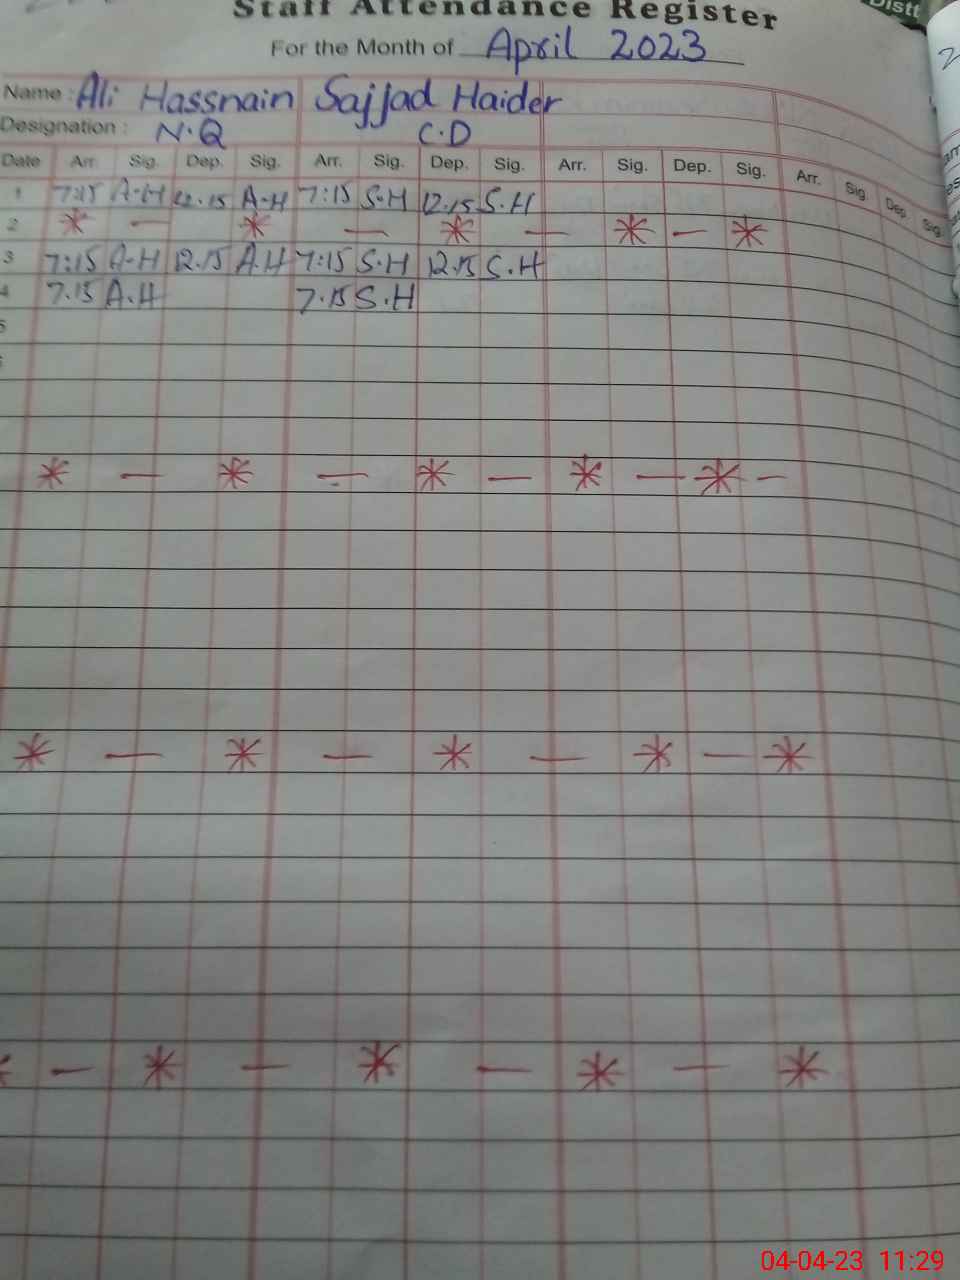 Staff Attendance Register
Distt
For the Month of April 2023
Name : Ali Hassnain Sajjad Haider
Designation : N.Q C.D
Date Arr. Sig. Dep. Sig. Arr. Sig. Dep. Sig. Arr. Sig. Dep. Sig. Arr. Sig. Dep. Sig.
1 7:15 A-H 12.15 A-H 7:15 S.H 12.15 S.H
2 * — * — * — * — *
3 7:15 A-H 12.15 A.H 7:15 S.H 12.15 S.H
4 7.15 A.H 7.15 S.H
5
* — * — * — * — * —
* — * — * — * — *
* — * — * — * — *
04-04-23 11:29